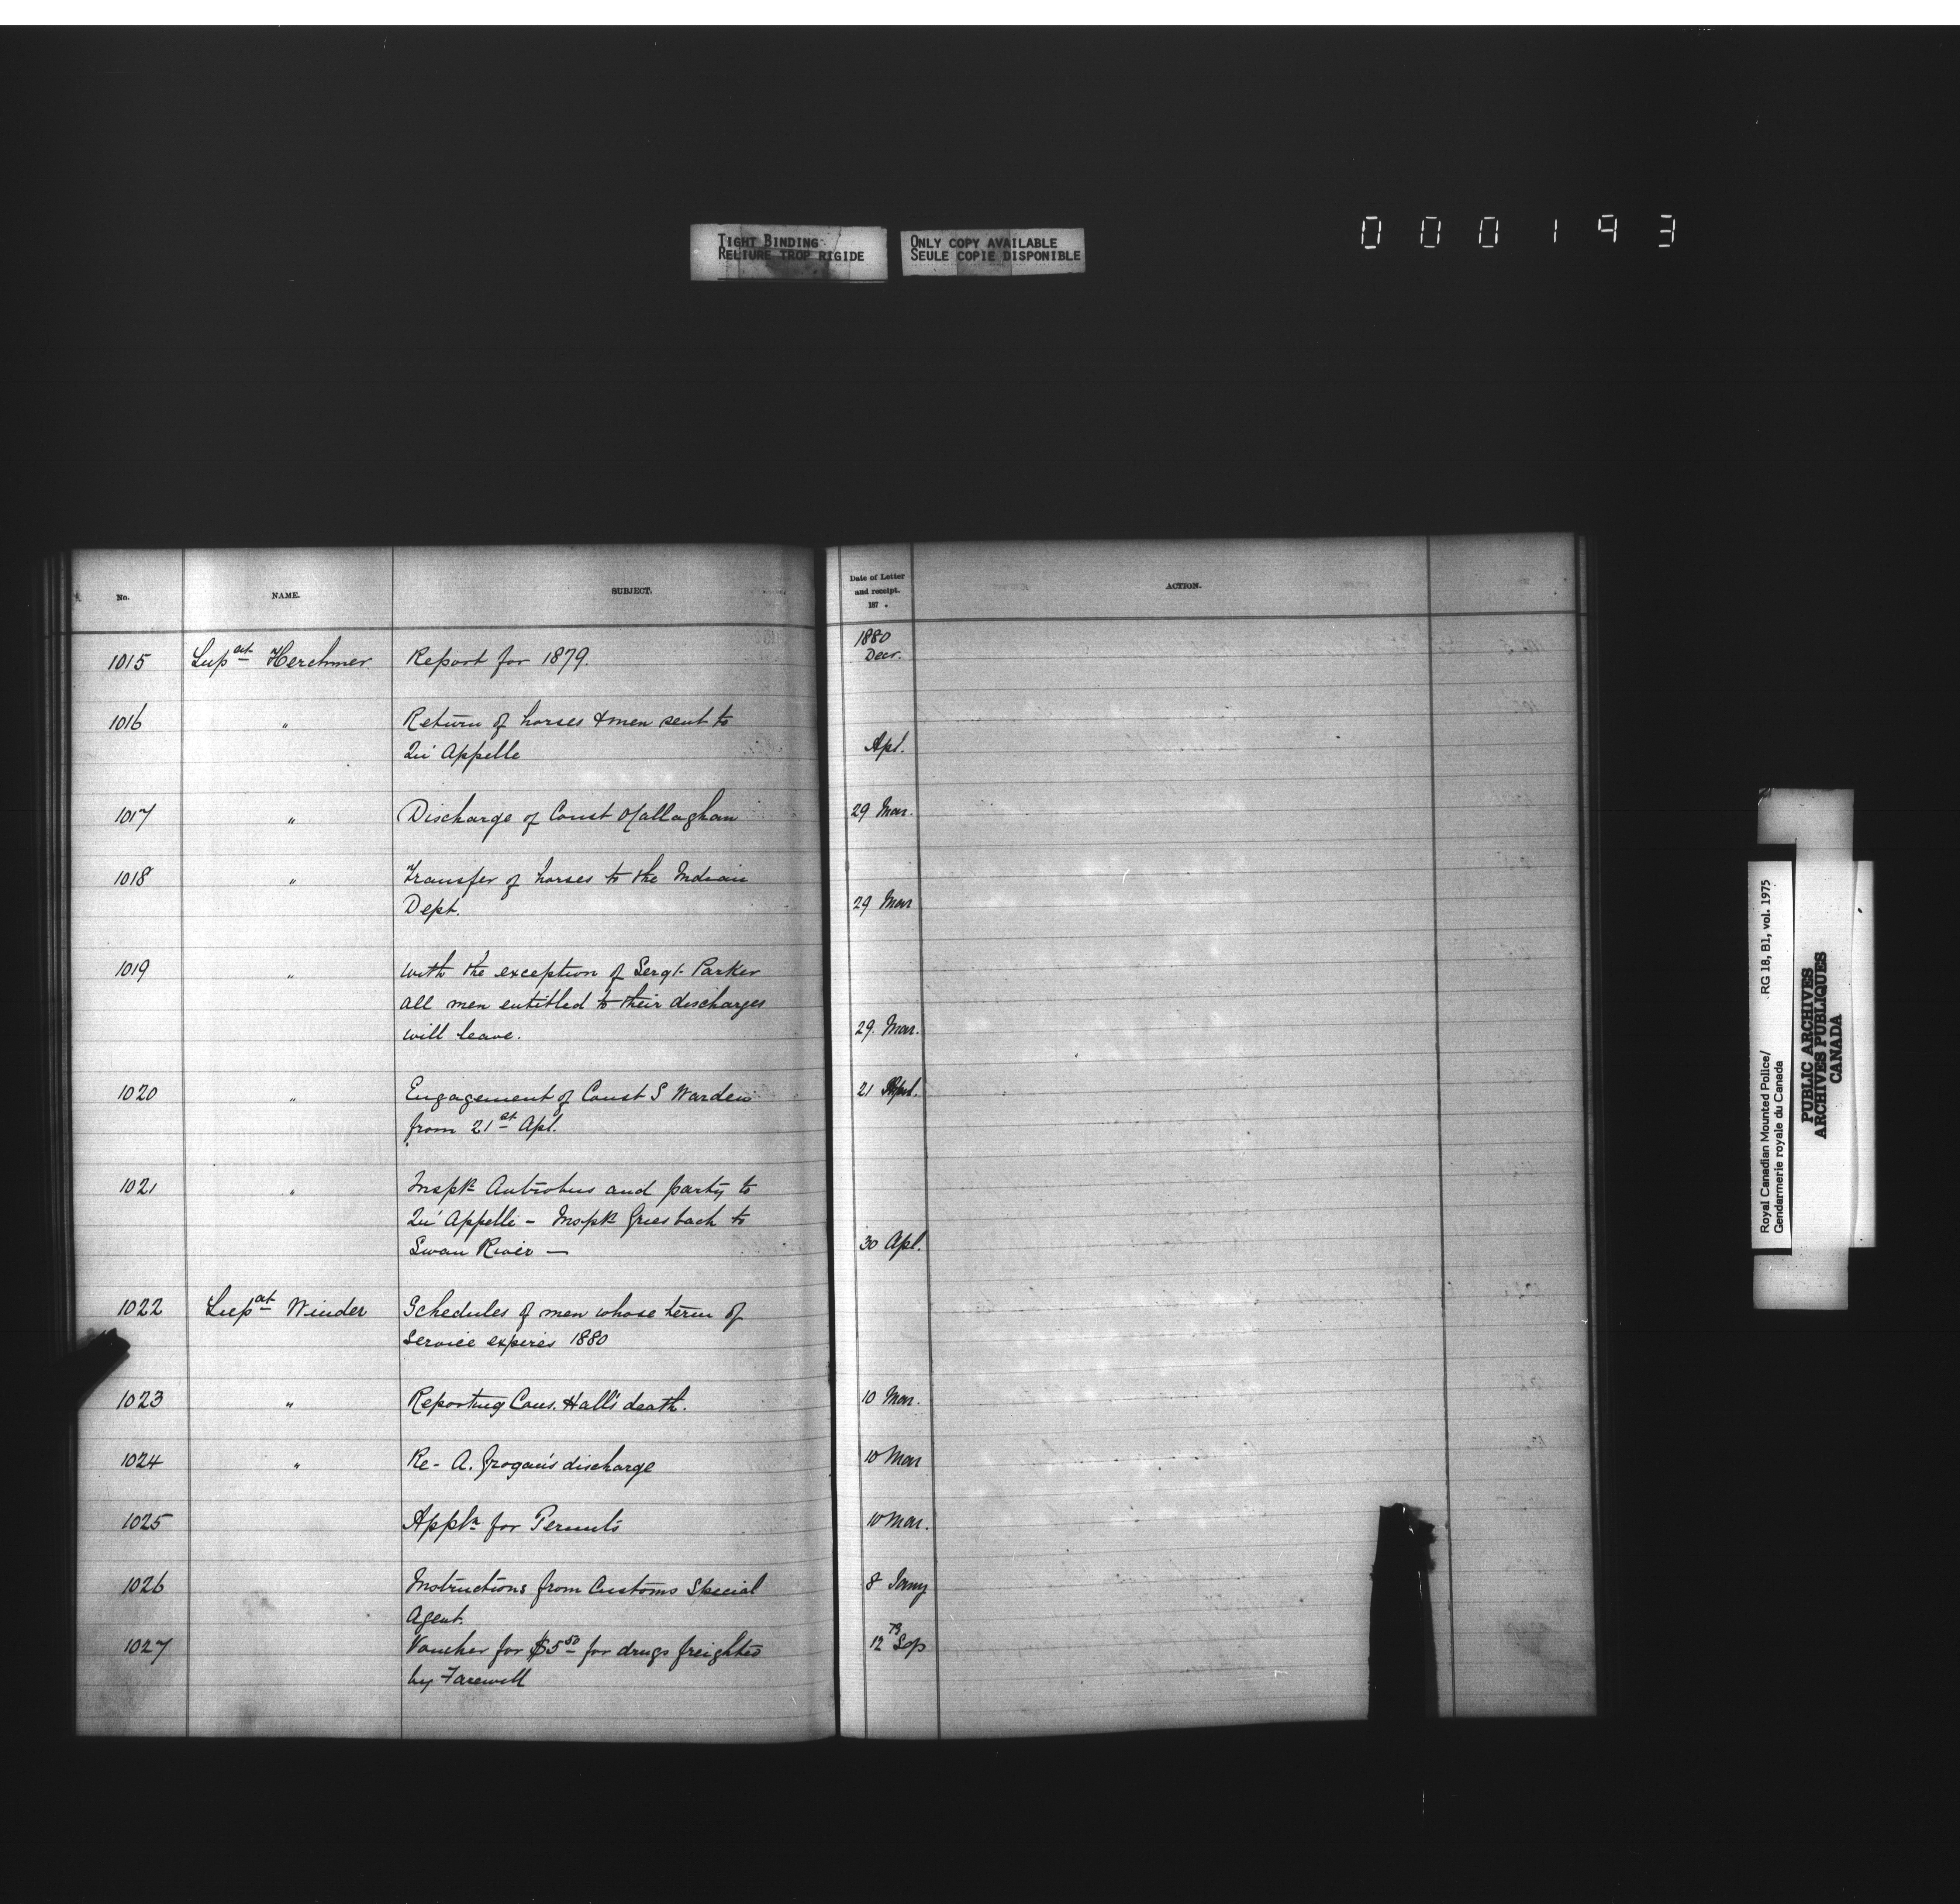 TIGHT BINDING
RELIURE TROP RIGIDE
ONLY COPY AVAILABLE
SEULE COPIE DISPONIBLE
000193
No. NAME. SUBJECT. Date of Letter and receipt. 187 . ACTION.
1015 Supdt Herchmer Report for 1879. 1880 Decr.
1016 " Return of horses & men sent to
Qu' Appelle Apl.
1017 " Discharge of Const O'Callaghan 29 Mar.
1018 " Transfer of horses to the Indian
Dept. 29 Mar
1019 " with the exception of Sergt. Parker
all men entitled to their discharges
will leave. 29. Mar.
1020 " Engagement of Const S Warden 21 Apl.
from 21st Apl.
1021 " Inspr Antrobus and party to
Qu' Appelle - Inspr Griesbach to
Swan River — 30 Apl.
1022 Supdt Winder Schedules of men whose term of
service expires 1880
1023 " Reporting Cons. Hall's death. 10 Mar.
1024 " Re- A. Grogan's discharge 10 Mar
1025 Appln for Permits 10 Mar.
1026 Instructions from Customs Special 8 Jany
Agent.
1027 Voucher for $5 50 for drugs freighted 12 79 Sep
by Farewell
Royal Canadian Mounted Police/
Gendarmerie royale du Canada
RG 18, B1, vol. 1975
PUBLIC ARCHIVES
ARCHIVES PUBLIQUES
CANADA